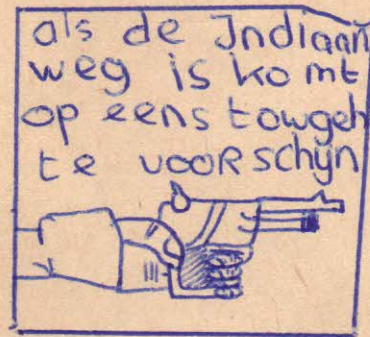 als de Indiaan
weg is komt
op eens towgeh
te voorschijn